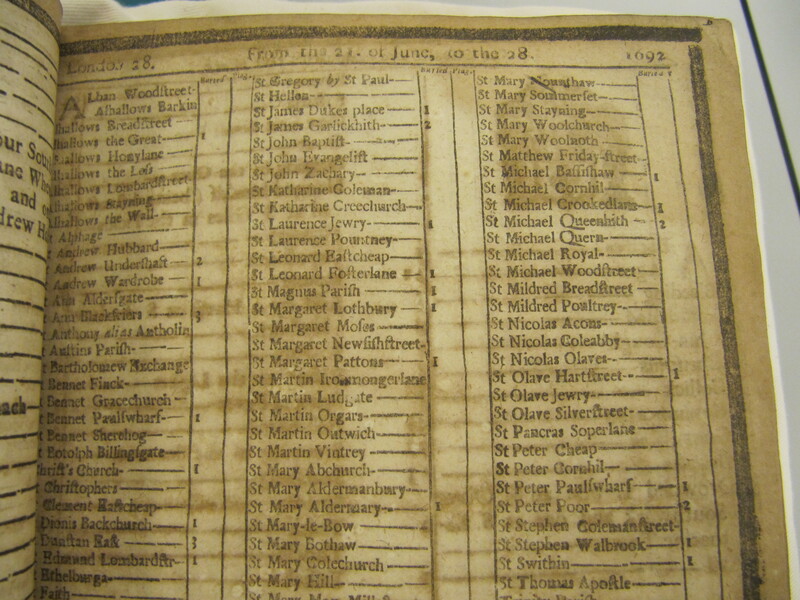 London 28.
From the 21. of June, to the 28.
1692
Buried
ALban Woodſtreet-
Alhallows Barkin
lhallows Breadſtreet
lhallows the Great 1
hallows Honylane
hallows the Leſs
lhallows Lombardſtreet
lhallows Stayning
lhallows the Wall
t Alphage
t Andrew Hubbard
Andrew Underſhaft 2
Andrew Wardrobe 1
t Ann Alderſgate
t Ann Blackfriers 3
Anthony alias Antholin
t Auſtins Pariſh
t Bartholomew Exchange
Bennet Finck
Bennet Gracechurch
Bennet Paulſwharf 1
Bennet Sherehog
Botolph Billingſgate
hriſt's Church 1
t Chriſtophers
Clement Eaſtcheap
Dionis Backchurch 1
Dunſtan Eaſt 3
Edmund Lombardſtr 1
Ethelburga
Faith
Buried Plag
St Gregory by St Paul
St Hellen
St James Dukes place 1
St James Garlickhith 2
St John Baptiſt
St John Evangeliſt
St John Zachary
St Katharine Coleman
St Katharine Creechurch
St Laurence Jewry 1
St Laurence Pountney
St Leonard Eaſtcheap
St Leonard Foſterlane 1
St Magnus Pariſh 1
St Margaret Lothbury 1
St Margaret Moſes
St Margaret Newfiſhſtreet
St Margaret Pattons 1
St Martin Ironmongerlane
St Martin Ludgate
St Martin Orgars
St Martin Outwich
St Martin Vintrey
St Mary Abchurch
St Mary Aldermanbury
St Mary Aldermary 1
St Mary-le-Bow
St Mary Bothaw
St Mary Colechurch
St Mary Hill
Buried
St Mary Mounthaw
St Mary Sommerſet
St Mary Stayning
St Mary Woolchurch
St Mary Woolnoth
St Matthew Friday-ſtreet
St Michael Baſſiſhaw 1
St Michael Cornhil
St Michael Crookedlane 1
St Michael Queenhith 2
St Michael Quern
St Michael Royal
St Michael Woodſtreet
St Mildred Breadſtreet
St Mildred Poultrey
St Nicolas Acons
St Nicolas Coleabby
St Nicolas Olaves
St Olave Hartſtreet 1
St Olave Jewry
St Olave Silverſtreet
St Pancras Soperlane
St Peter Cheap
St Peter Cornhil
St Peter Paulſwharf 1
St Peter Poor 2
St Stephen Colemanſtreet
St Stephen Walbrook 1
St Swithin 1
St Thomas Apoſtle